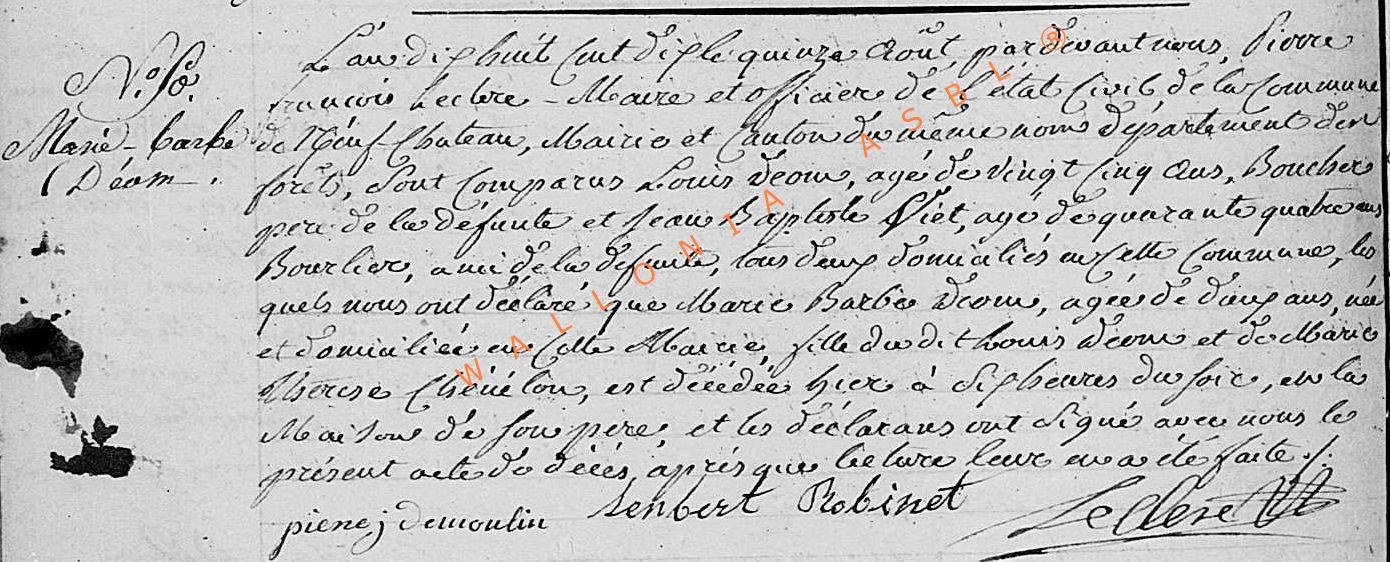 N.º 50.
Marie-barbe
Déom.
L'an dix huit cent dix le quinze Août, pardevant nous, Pierre
françois Leclere - Maire et officier de L'état Civil de la Commune
de Neuf-Chateau, Mairie et Canton du même nom département des
forêts, Sont Comparus Louis Déom, agé de vingt Cinq ans, Boucher
pere de la défunte et Jean Baptiste agé de quarante quatre ans
Bourlier, ami de la défunte, tous deux domiciliés en Cette Commune, les
quels nous ont déclaré que Marie Barbe Déom, agée de deux ans, née
et domiciliée en Cette Mairie, fille du dit Louis Déom et de Marie
Thérese Chénélon, est décédée hier à Six heures du soir, en la
Maison de son père, et les déclarans ont signé avec nous le
présent acte de décès, après que lecture leur en a été faite ./.
pierre j demoulin Lenbert Robinet Leclere
WALLONIA ASBL ®